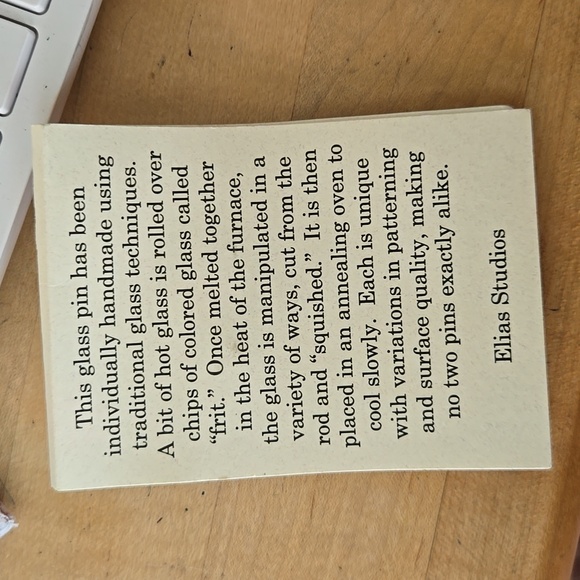 This glass pin has been
individually handmade using
traditional glass techniques.
A bit of hot glass is rolled over
chips of colored glass called
“frit.” Once melted together
in the heat of the furnace,
the glass is manipulated in a
variety of ways, cut from the
rod and “squished.” It is then
placed in an annealing oven to
cool slowly. Each is unique
with variations in patterning
and surface quality, making
no two pins exactly alike.
Elias Studios